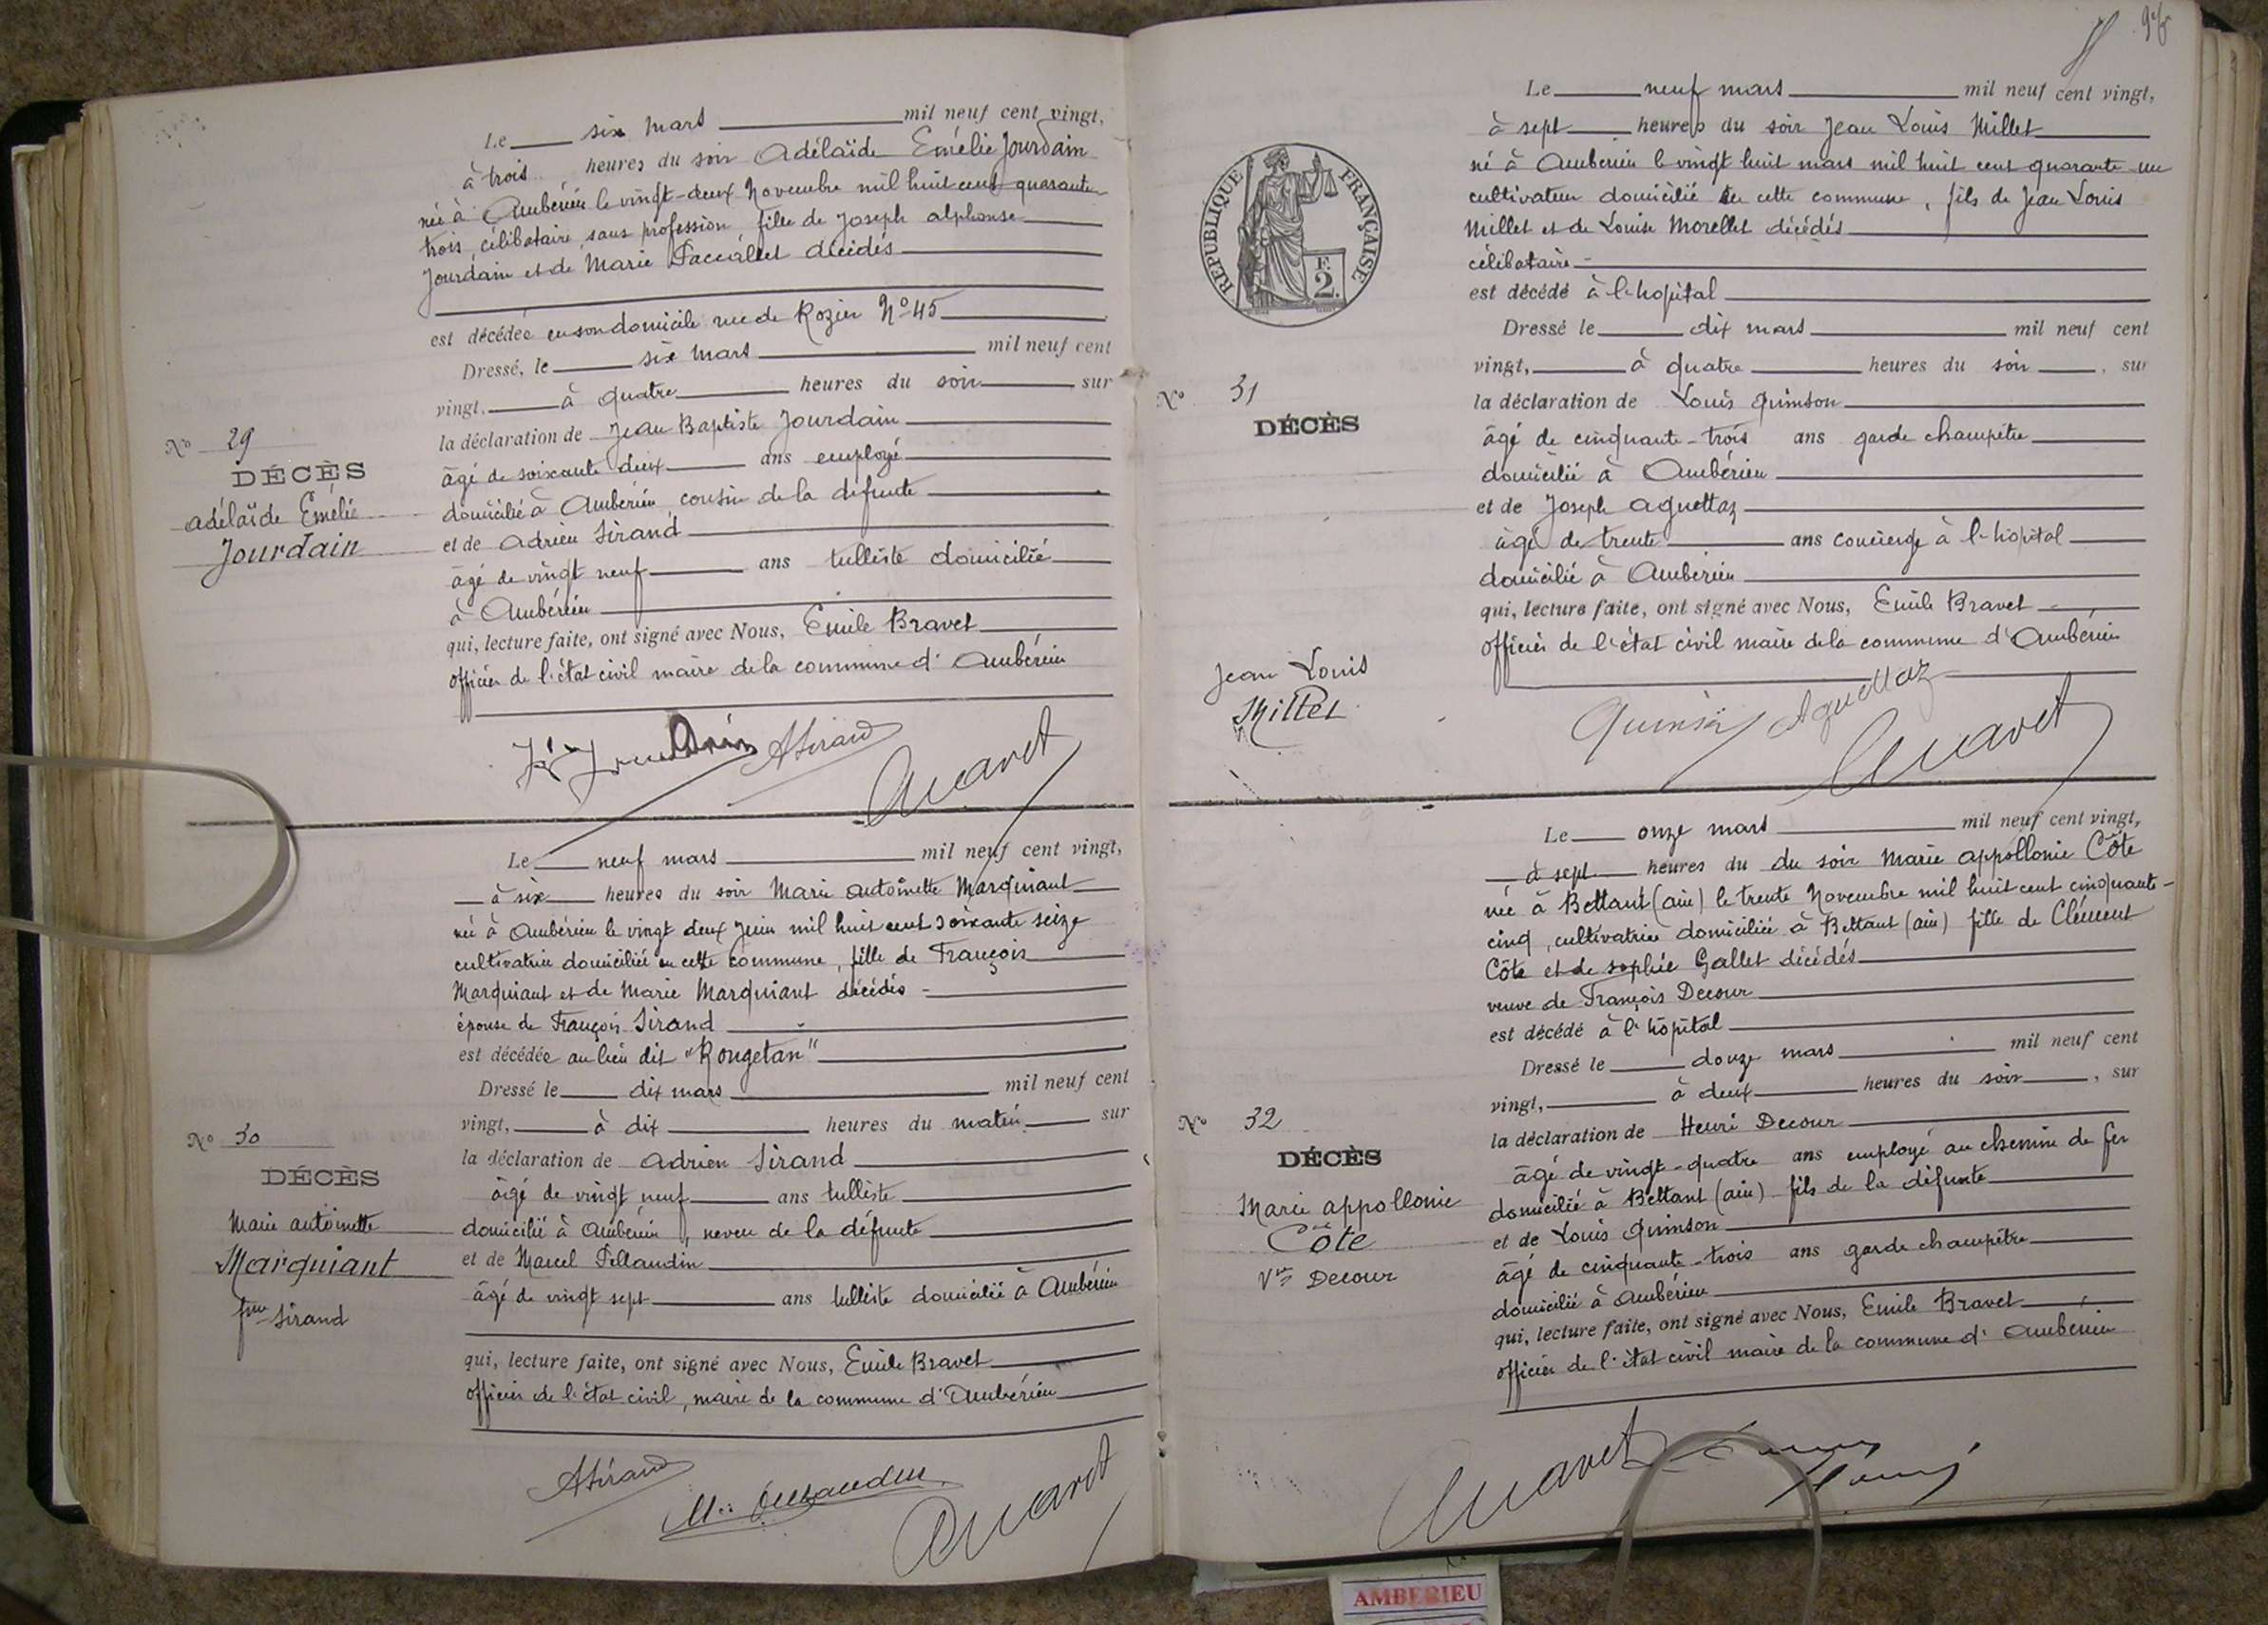 Le six mars mil neuf cent vingt,
à trois heures du soir Adélaïde Emélie Jourdain
née à Ambérieu le vingt-deux Novembre mil huit cent quarante
trois, célibataire, sans profession, fille de Joseph alphonse
Jourdain et de Marie décédés
est décédée en son domicile rue de Rozier No 45
Dressé, le six mars mil neuf cent
vingt, à quatre heures du soir sur
la déclaration de Jean Baptiste Jourdain
âgé de soixante deux ans employé
domicilié à Ambérieu, cousin de la défunte
et de Adrien Sirand
âgé de vingt neuf ans tulliste domicilié
à Ambérieu
qui, lecture faite, ont signé avec Nous, Emile Bravet
officier de l'état civil maire de la commune d'Ambérieu
No 29
DÉCÈS
adélaïde Emélie
Jourdain
Jourdain ASirand
Bravet
Le neuf mars mil neuf cent vingt,
à six heures du soir Marie Antoinette Marquiant
née à Ambérieu le vingt deux Juin mil huit cent soixante seize
cultivatrice domiciliée en cette commune, fille de François
Marquiant et de Marie Marquiant décédés
épouse de François Sirand
est décédée au lieu dit "Rougetan"
Dressé le dix mars mil neuf cent
vingt, à dix heures du matin sur
la déclaration de Adrien Sirand
âgé de vingt neuf ans tulliste
domicilié à Ambérieu, neveu de la défunte
et de Marcel Pellaudin
âgé de vingt sept ans tulliste domicilié à Ambérieu
qui, lecture faite, ont signé avec Nous, Emile Bravet
officier de l'état civil, maire de la commune d'Ambérieu
No 30
DÉCÈS
Marie antoinette
Marquiant
fme Sirand
ASirand
Bravet
96
Le neuf mars mil neuf cent vingt,
à sept heures du soir Jean Louis Millet
né à Ambérieu le vingt huit mars mil huit cent quarante un
cultivateur domicilié en cette commune, fils de Jean Louis
Millet et de Louise Morellet décédés
célibataire
est décédé à l'hopital
Dressé le dix mars mil neuf cent
vingt, à quatre heures du soir, sur
la déclaration de Louis Quinson
âgé de cinquante-trois ans garde champêtre
domicilié à Ambérieu
et de Joseph Aguettaz
âgé de trente ans concierge à l'hôpital
domicilié à Ambérieu
qui, lecture faite, ont signé avec Nous, Emile Bravet
officier de l'état civil maire de la commune d'Ambérieu
RÉPUBLIQUE FRANÇAISE
F.
2.
No 31
DÉCÈS
Jean Louis
Millet
Quinson Aguettaz
Bravet
Le onze mars mil neuf cent vingt,
à sept heures du du soir Marie appollonie Côte
née à Bettant (ain) le trente Novembre mil huit cent cinquante-
cinq, cultivatrice domiciliée à Bettant (ain) fille de Clément
Côte et de sophie Gallet décédés
veuve de François Decour
est décédé à l'hôpital
Dressé le douze mars mil neuf cent
vingt, à deux heures du soir, sur
la déclaration de Henri Decour
âgé de vingt-quatre ans employé au chemin de fer
domicilié à Bettant (ain) fils de la défunte
et de Louis Quinson
âgé de cinquante-trois ans garde champêtre
domicilié à Ambérieu
qui, lecture faite, ont signé avec Nous, Emile Bravet
officier de l'état civil maire de la commune d'Ambérieu
No 32
DÉCÈS
Marie appollonie
Côte
Vve Decour
Bravet
AMBERIEU